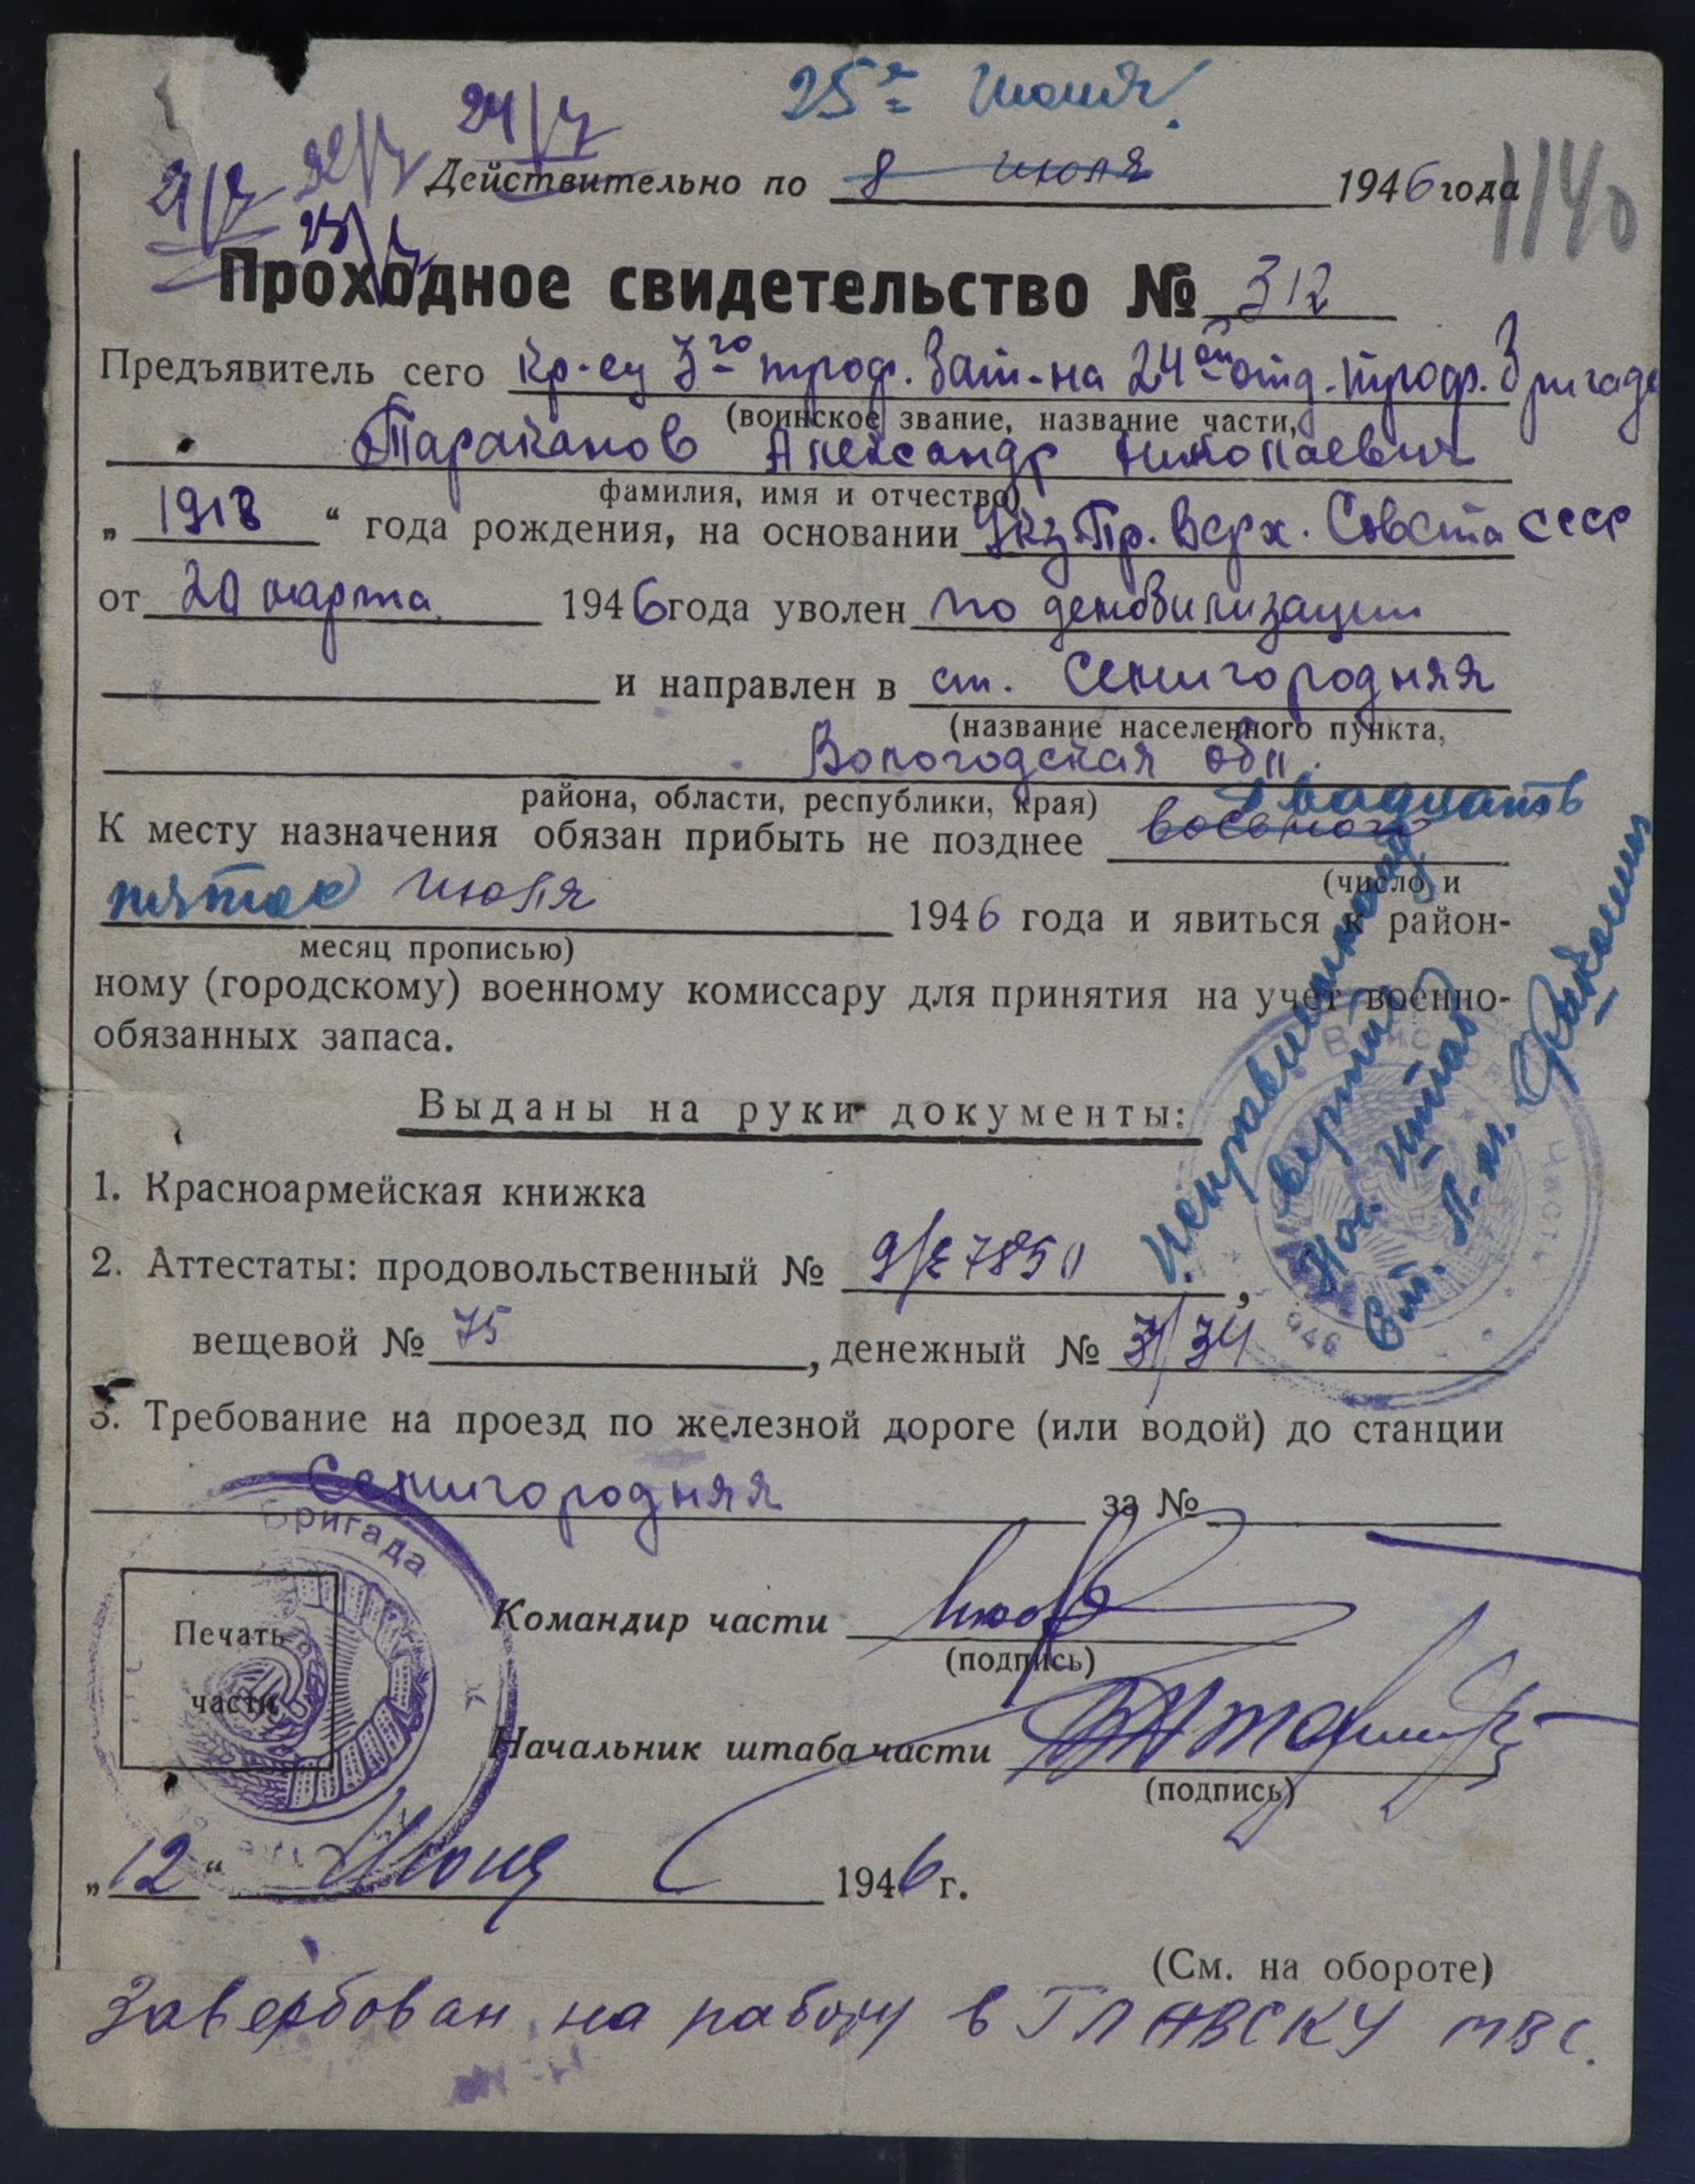 25е Июля
24/7
22/7
21/7
23/7
Действительно по 8 июля 1946 года
1140
Проходное свидетельство № 312
Предъявитель сего Кр-ец 3го троф. Бат-на 24ой отд. троф. Бригады
(воинское звание, название части,
Тараканов Александр Николаевич
фамилия, имя и отчество)
„ 1918 “ года рождения, на основании Указ Пр. Верх. Совета СССР
от 20 марта 1946 года уволен по демобилизации
и направлен в ст. Семигородняя
(название населенного пункта,
Вологодская обл.
района, области, республики, края)
двадцать
К месту назначения обязан прибыть не позднее восьмого
(число и
пятое июля 1946 года и явиться к район-
месяц прописью)
ному (городскому) военному комиссару для принятия на учет военно-
обязанных запаса.
Исправленному
верить
Нач. штаба
Ст. Л-т.
Войсковая Часть
Выданы на руки документы:
1. Красноармейская книжка
2. Аттестаты: продовольственный № 9/Е 7850,
вещевой № 75, денежный № 3/34
3. Требование на проезд по железной дороге (или водой) до станции
Семигородняя за №
Бригада
Печать
части
Командир части
(подпись)
Начальник штаба части
(подпись)
„12“ Июня 1946 г.
(См. на обороте)
Завербован на работу в ГЛАВСКУ МВС.